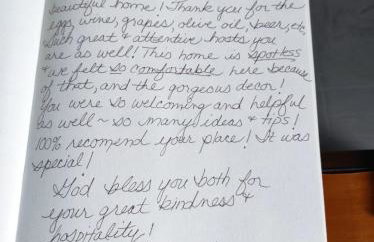 beautiful home! Thank you for the
eggs, wine, grapes, olive oil, beer, etc.
Such great & attentive hosts you
are as well! This home is spotless
& we felt so comfortable here because
of that, and the gorgeous decor!
You were so welcoming and helpful
as well ~ so many ideas & tips!
100% recomend your place! It was
special!
God bless you both for
your great kindness &
hospitality!